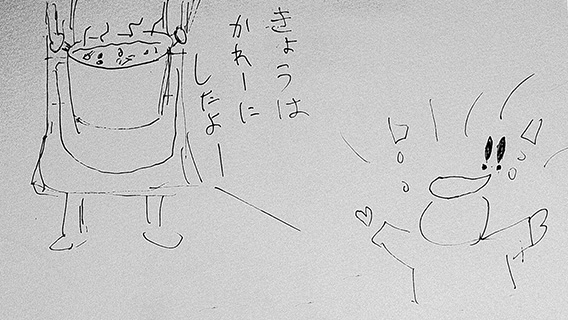 きょうは
かれーに
したよー